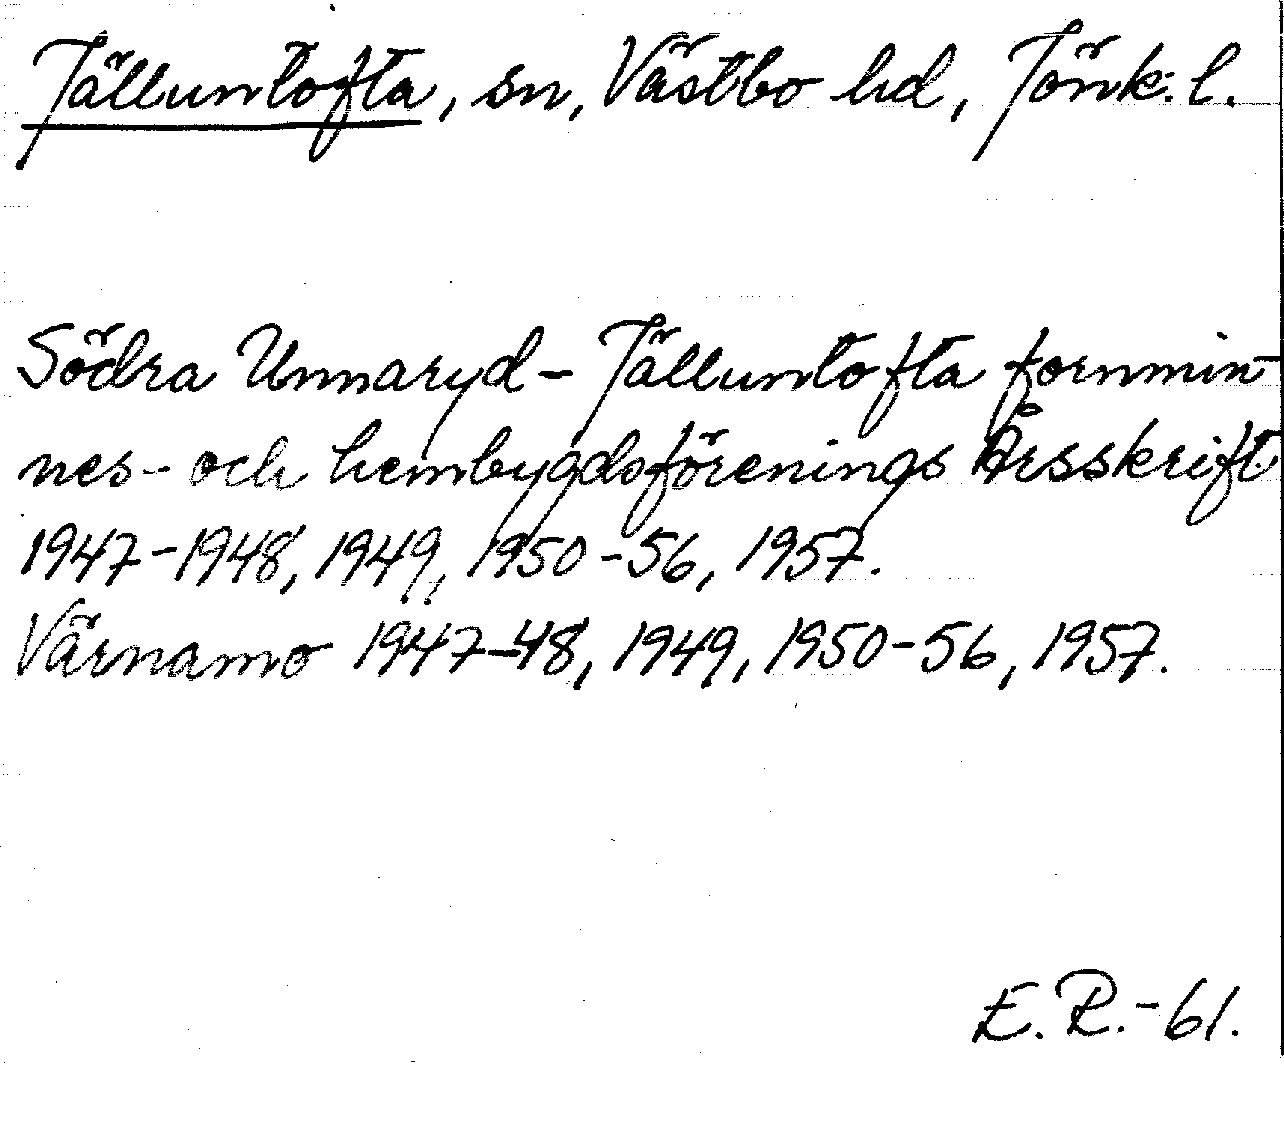 Jälluntofta, sn, Västbo hd, Jönk:l.
Södra Unnaryd - Jälluntofta fornmin-
nes- och hembygdsförenings Årsskrift
1947-1948, 1949, 1950-56, 1957.
Värnamo 1947-48, 1949, 1950-56, 1957.
E.R.-61.